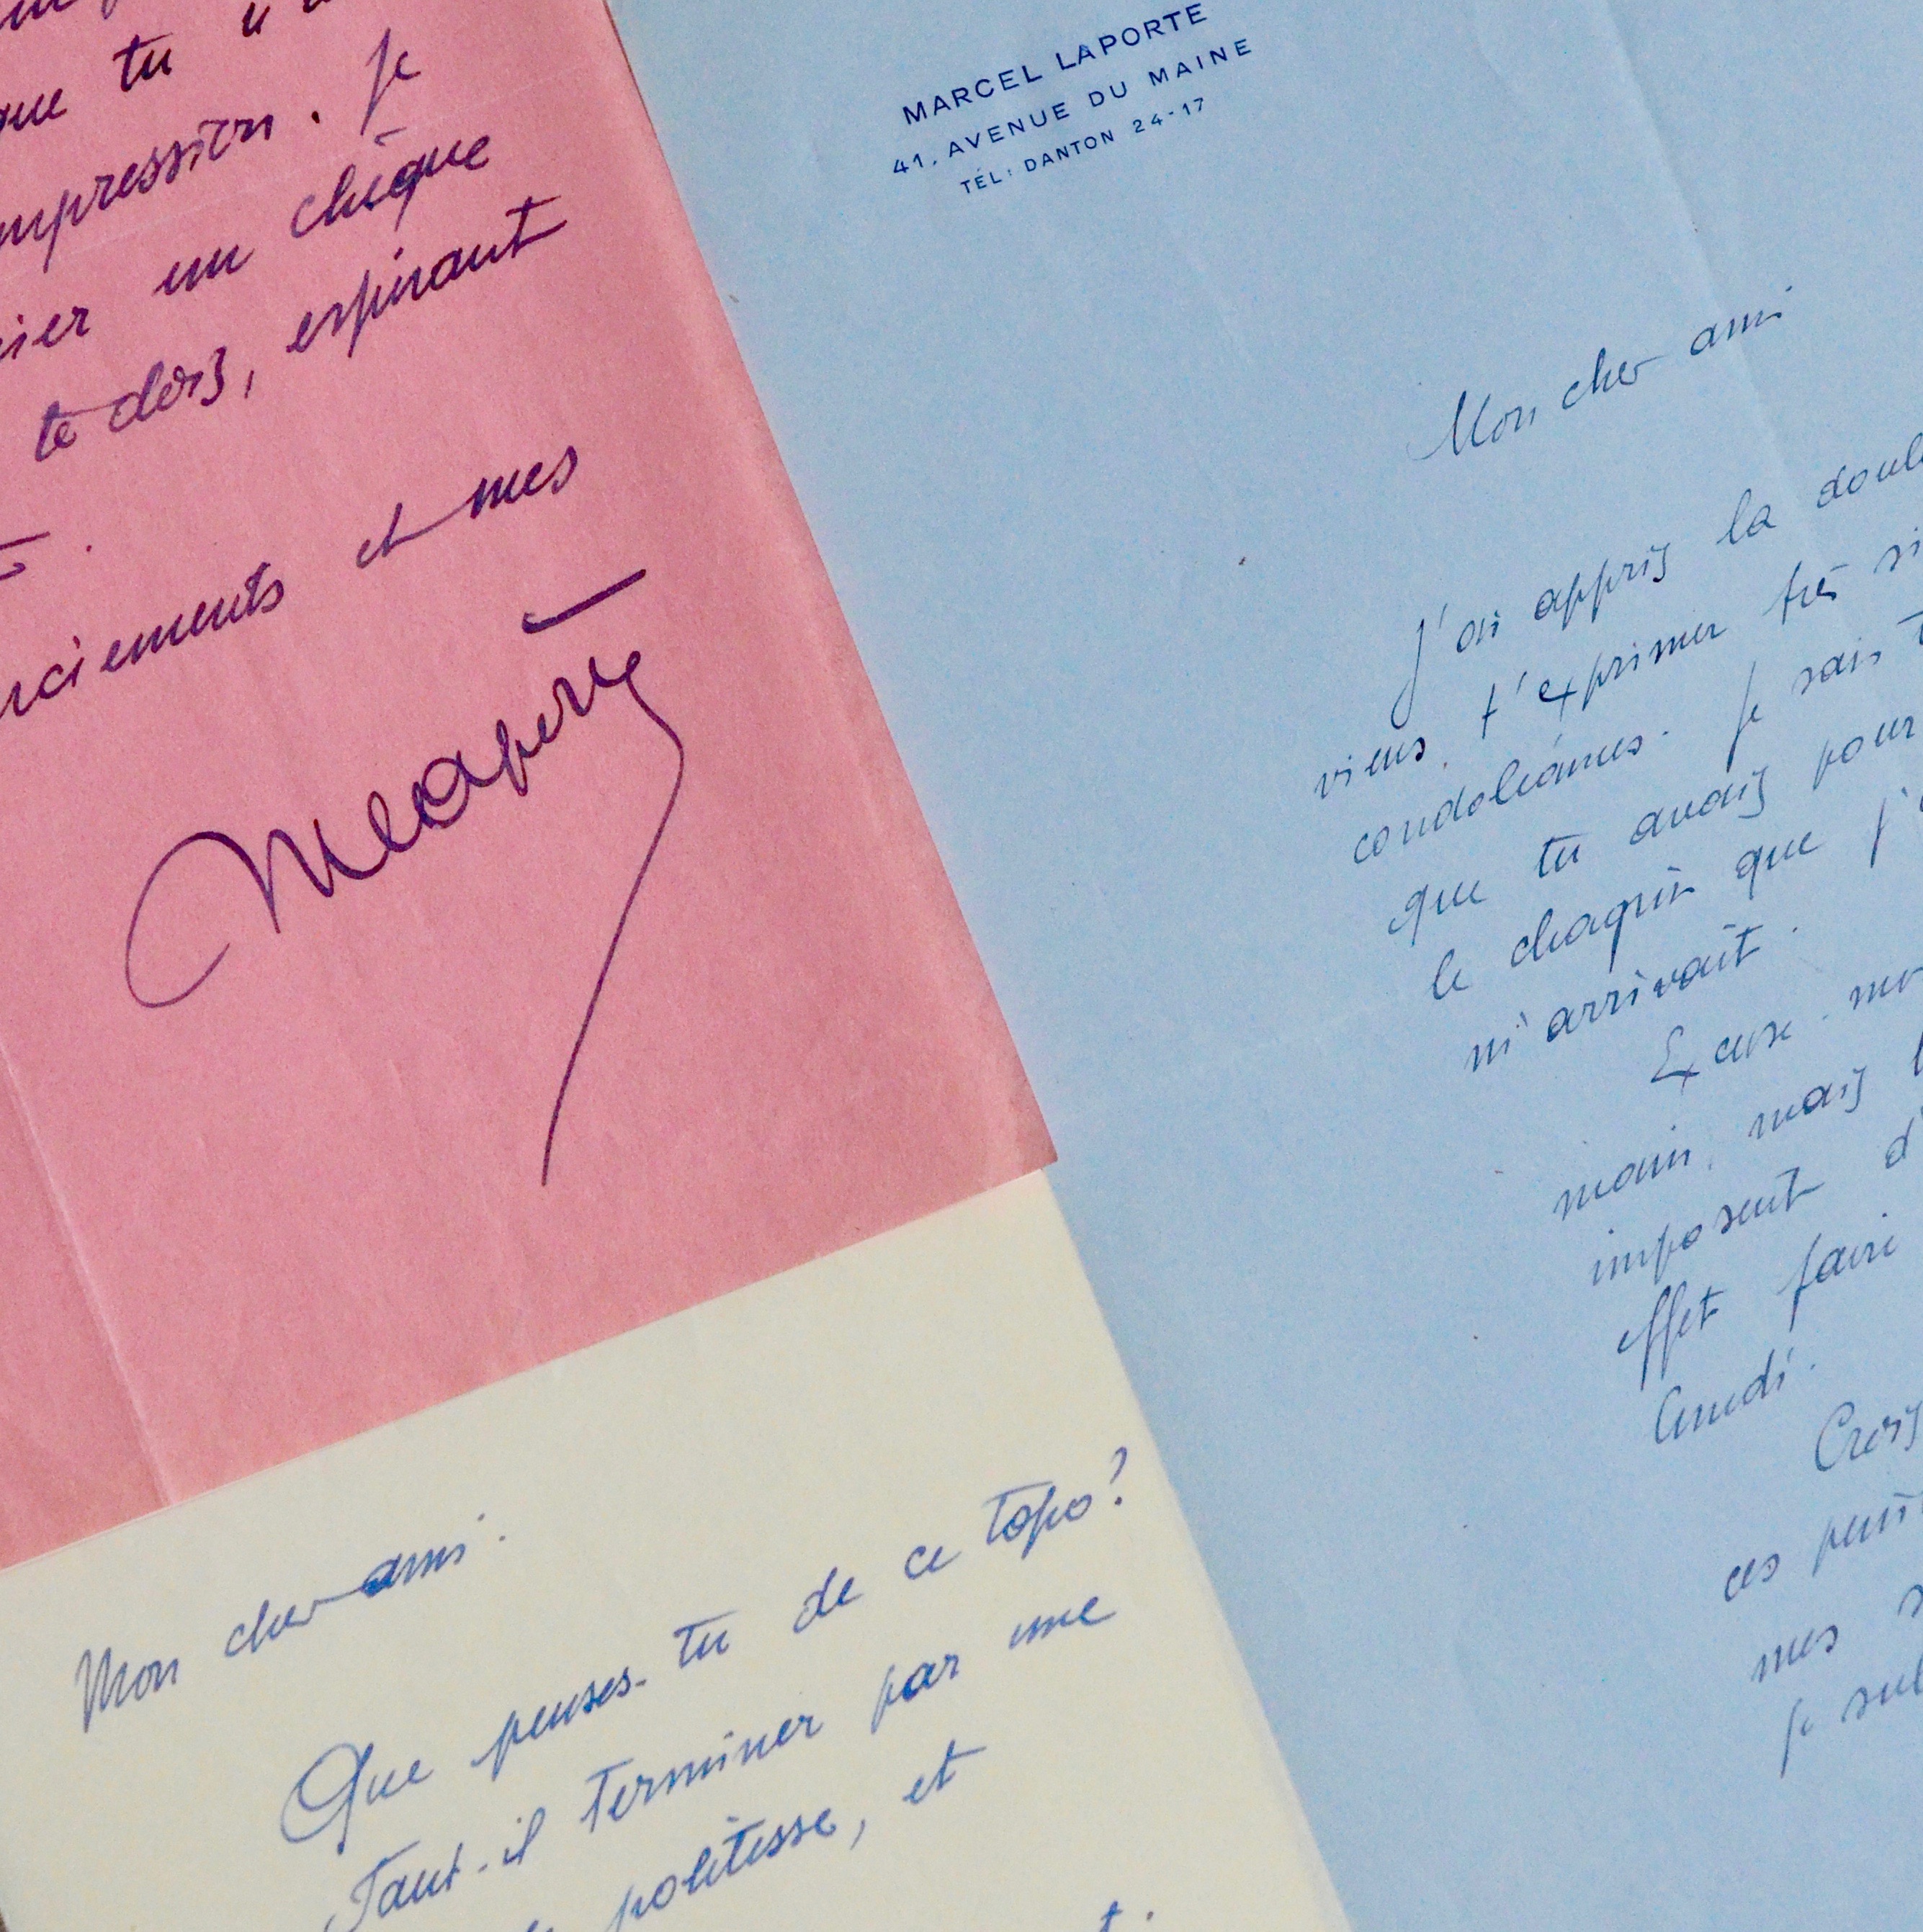 que tu
mpression. Je
ier un chèque
te dois, espérant
rciements et mes
MLaporte
MARCEL LAPORTE
41, AVENUE DU MAINE
TÉL: DANTON 24-17
Mon cher ami
J'ai appris la doul
viens t'exprimer très si
condoléances. Je sais t
que tu avais pour
le chagrin que j'
m'arrivait.
Excuse-mo
main, mais l
imposent d'
effet faire
Lundi.
Crois
ces pens
mes s
Je sui
Mon cher ami.
Que penses-tu de ce topo?
Faut-il terminer par une
politesse, et
t.